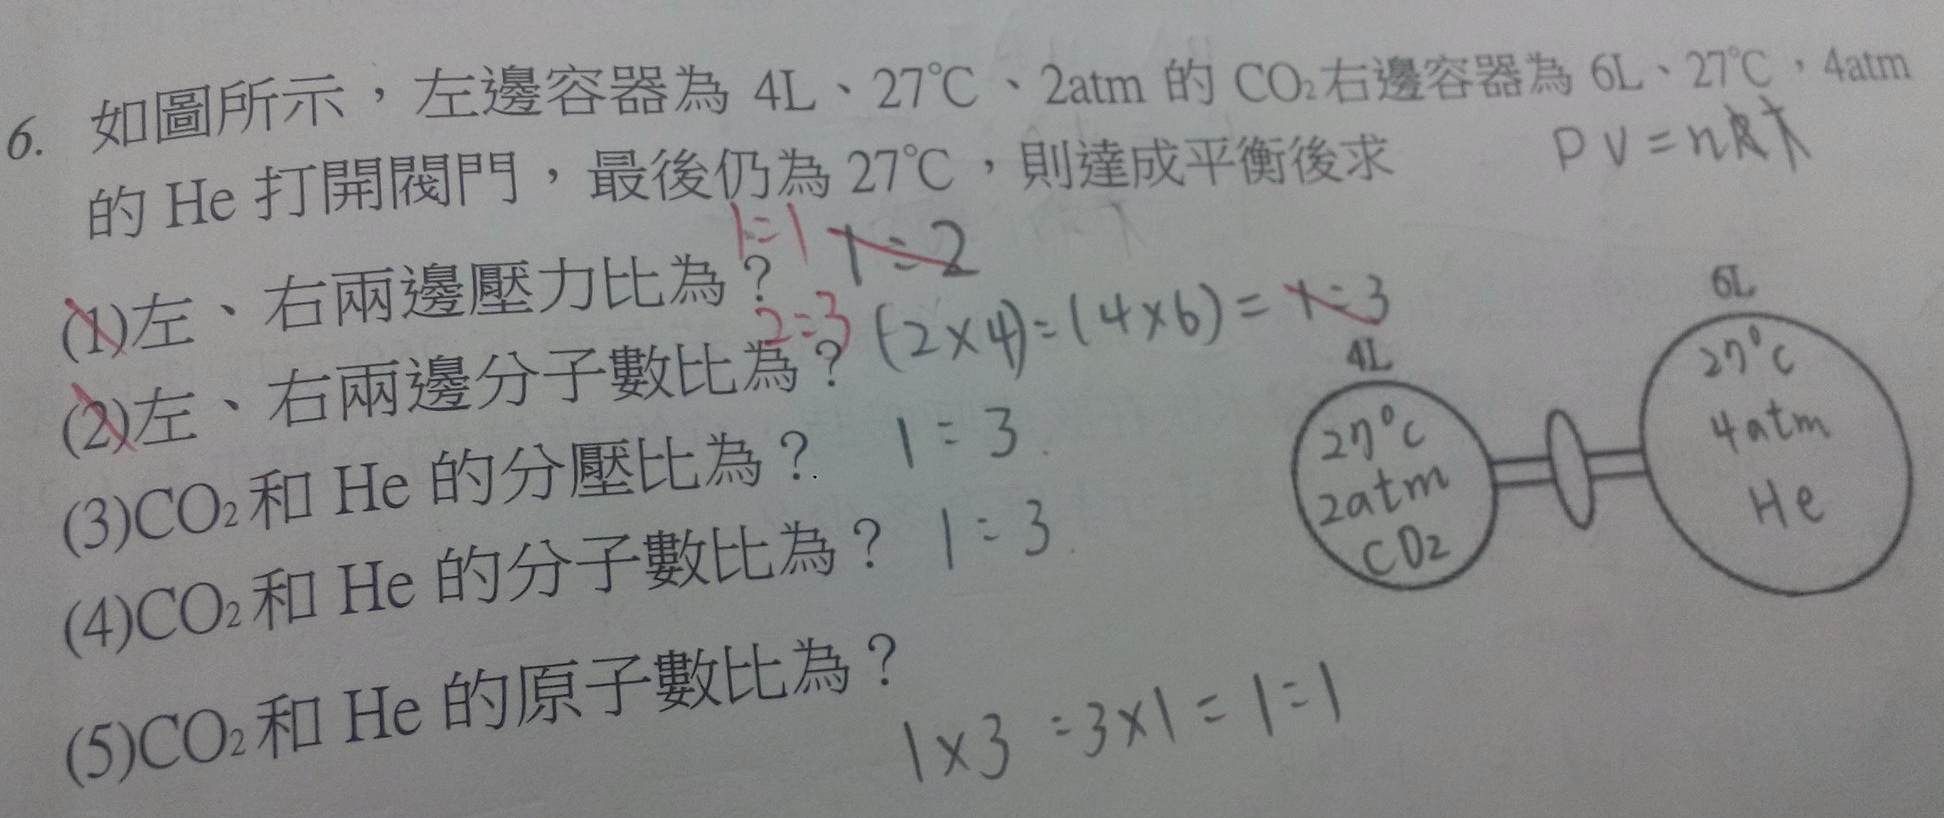 6. 如圖所示，左邊容器為 4L、27℃、2atm 的 CO₂右邊容器為 6L、27℃，4atm
的 He 打開閥門，最後仍為 27℃，則達成平衡後求
PV=nRT
(1)左、右兩邊壓力比為？ 1:1 1:2
(2)左、右兩邊分子數比為？ 2:3 (2×4):(4×6)=1:3
(3)CO₂和 He 的分壓比為？ 1:3
(4)CO₂和 He 的分子數比為？ 1:3
(5)CO₂和 He 的原子數比為？
1×3:3×1=1:1
4L
27°C
2atm
CO2
6L
27°C
4atm
He